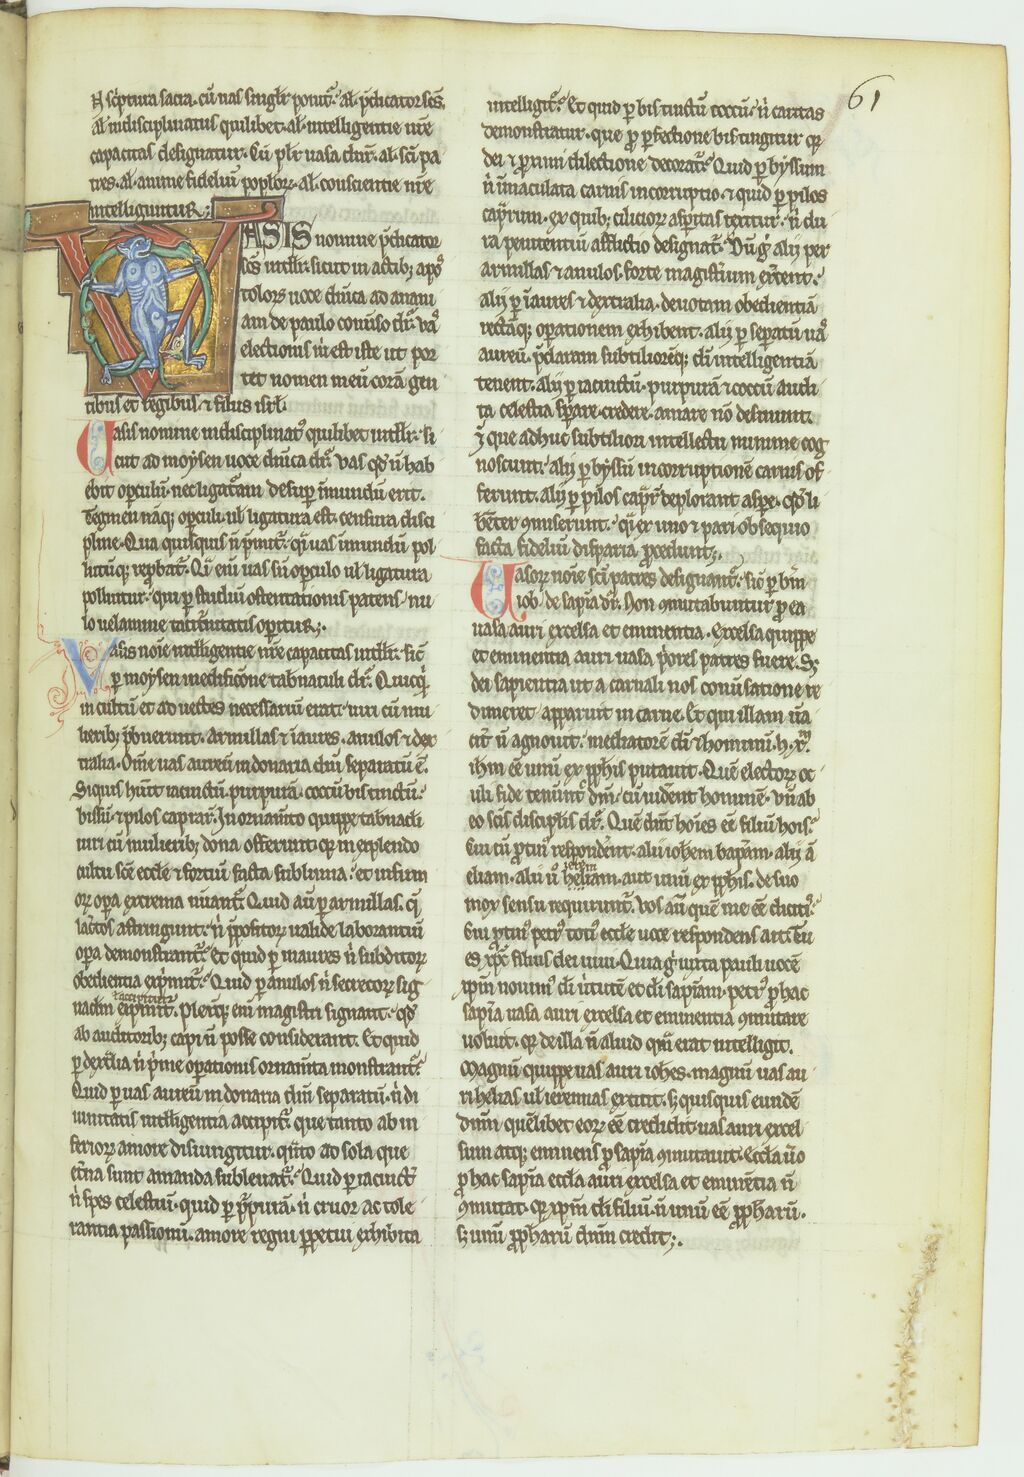 61
N sc̄ptura sacra. cū uas singl̄r ponit᷑. al̓ p̄dicator sc̄s.
al̓ indisciplinatus quilibet. al̓ intelligentie nr̄e
capacitas designatur. Cū pl̄r uasa dn̄r. al̓ sc̄i pa
tres. al̓ anime fideliū poploꝝ. al̓ conscientie nr̄e
intelligunturR;
VASIS nomine p̄dicator
sc̄s intll̄r. sicut in actib; apo
stoloꝝ uoce dn̄ica ad anani
am de paulo conūso dr̄. vas
electionis m̄ est iste ut por
tet nomen meū corā gen
tibus et regibus ⁊ filiis isrl̄.
Vasis nomine indisciplinatꝰ quilibet intll̄r. si
cut ad moysen uoce dn̄ica dr̄. vas qd̄ ñ hab
ebit opculū. nec ligatam desup īmundū erit.
Tegmen nāq; opculi ul̄ ligatura est. censura disci
pline. Qua quisquis ñ p̄mit᷑. q̄i uas īmundū pol
lutūq; rep̄bat᷑. Qi eni uas sū opculo ul̄ ligatura
polluitur. qui p studiū ostentationis patens. nu
lo uelamine taciturnitatis opitur;
Vasis noīe intelligentie nr̄e capacitas intll̄r. sic̄
p moysen in edificōne tabnaculi dr̄. Quicq̄
in cultū et ad uestes necessariū erat. uiri cū mu
lierib; p̄buerunt. armillas ⁊ īaures. anulos ⁊ dex
tralia. Om̄e uas aureū in donaria dn̄i separatū ē.
Siquis huīt iacinctū. purpurā. coccū bis tinctū.
bissū. ⁊ pilos caprar᷑. In ornam̄to quippe tabnacli
uiri cū mulierib; dona offerunt. q̄ꝛ in explendo
cultu sc̄e eccl̄e ⁊ fortiū facta sublimia. et infirm
oꝝ opa extrema nūant᷑. Quid au᷑ p armillas. q̄
lac̄tos astringunt. ñ p̄positoꝝ ualide laborantiū
opa demonstrant᷑. Et quid p inaures ñ subditoꝝ
obedientia exp̄mit᷑. Quid p anulos ñ secretoꝝ sig
accipitur
naclm̄ exp̄mit᷑. Plerūq; eni magistri signant. qd̄
ab auditorib; capi ñ posse considerant. Et quid
p dext̄lia ñ p̄me opationis ornam̄ta monstrant᷑.
Quid p uas aureū in donaria dn̄i separatū. ñ di
uinitatis intelligentia accipit᷑. que tanto ab in
ferioꝝ amore disiungitur. q̄nto ad sola que
et̄na sunt amanda subleuat᷑. Quid p iacinctū
ñ spes celestiū. quid p p̄purā. ñ cruor ac tole
rantia passionū. amore regni ppetui exhibita
intelligit᷑. Et quid p bis tinctū coccū. ñ caritas
demonstratur. que ꝓ pfectione bis tingitur q̄ꝛ
dei ⁊ ꝓximi dilectione decorat᷑. Quid p byssum
ñ īmaculata carnis incorruptio. ⁊ quid p pilos
cap̄rum. ex quib; cilicioꝝ aspitas texitur. ñ du
ra penitentiū afflictio designat᷑. Dū g̊ alij per
armillas ⁊ anulos. forte magistīum ex̄cent.
alij p īaures ⁊ dextralia. deuotam obedientiā
rectāq; operationem exhibent. alij p sepatū uas
aureū. p̄claram subtilioreq; di intelligentiā
tenent. alij p iacinctū. purpurā ⁊ coccū. audi
ta celestia sp̄are. credere. amare nō desinunt.
q̄ que adhuc subtiliori intellectu minime cog
noscunt. alij p byssū incorruptionē carnis of
ferunt. alij p pilos cap̄r᷑ deplorant aspe. qd̄ li
bent̄ ꝯmiserunt. q̄i ex uno ⁊ pari obsequio
facta fideliū disparia ꝓcedunt;
Vasoꝝ noīe sc̄i patres designant᷑. sic̄ p bt̄m
iob. de sapīa dr̄. Non ꝯmutabuntur ꝓ ea
uasa auri excelsa et eminentia. Excelsa quippe
et eminentia auri uasa p̄ores patres fuere. Sꝫ
dei sapientia ut a carnali nos conūsatione re
dimeret. apparuit in carne. Et qui illam ūa
cit᷑ ñ agnouit. mediatorē di ⁊ hominū. h. xp̄m
ihm̄ eē unū ex ꝓphis putauit. Quē electoꝝ oc
uli fide tenunt᷑ dm̄. cū uident hominē. vn̄ ab
eo sc̄is disciplis dr̄. Quē dn̄t hoīes eē filiū hoīs.
Cui cū ꝓtinꝰ respondent. alii iohēm bapam. alij ā
ierem
eliam. alij ū heliam. aut unū ex ꝓphis. de suo
mox sensu requirunt᷑. Vos au᷑ quē me eē dicitis.
Cui ꝓtinꝰ petrꝰ totiꝰ eccl̄e uoce respondens ait. Tu
es xp̄c filius dei uiui. Quia g̊ iuxta pauli uocē
xp̄m nouimꝰ di ūtutē et di sapīam. petrꝰ ꝓ hac
sapīa uasa auri excelsa et eminentia ꝯmutare
noluit. q̄ꝛ de illa ñ aliud qm̄ erat intelligit.
Magnū quippe uas auri iohes. magnū uas au
ri helias ul̄ ieremias extitit. sꝫ quisquis eundē
dn̄m quēlibet eoꝝ eē credidit. uas auri excel
sum atq; eminens ꝓ sapīa ꝯmutauit. Eccl̄a ūo
ꝓ hac sapīa eccl̄a auri excelsa et eminētia ñ
ꝯmutat. q̄ꝛ xp̄m di filiū. ñ unū eē ꝓpharū.
sꝫ unū ꝓpharū dn̄m credit;